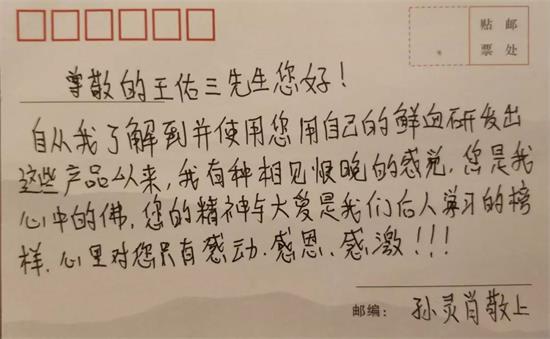 贴 邮
票 处
尊敬的王佑三先生您好!
自从我了解到并使用您用自己的鲜血研发出
这些产品以来,我有种相见恨晚的感觉,您是我
心中的佛,您的精神与大爱是我们后人学习的榜
样.心里对您只有感动.感恩.感激!!!
邮编: 孙灵肖敬上